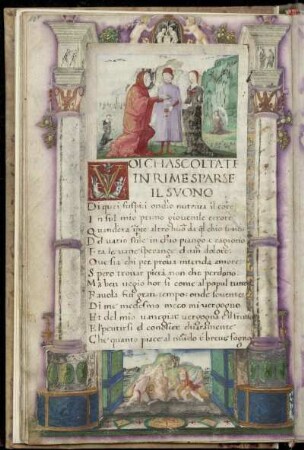 VOI CHASCOLTATE
IN RIME SPARSE
IL SVONO
Di quei sospiri ondio nutriva il core
In sul mio primo giovenile errore
Quandera in parte altrhuo da quel chio sono
Del vario stile in chio piango et ragiono
Fra le vane speranze el van dolore
Ove sia chi per prova intenda amore
Spero trovar pietà non che perdono
Ma ben veggio hor si come al popul tutto
Favola fui gran tempo: onde sovente
Di me medesmo meco mi vergogno
Et del mio vaneggiar vergogna el frutto
El pentirsi el conoscer chiaramente
Che quanto piace al mondo è breve sogno